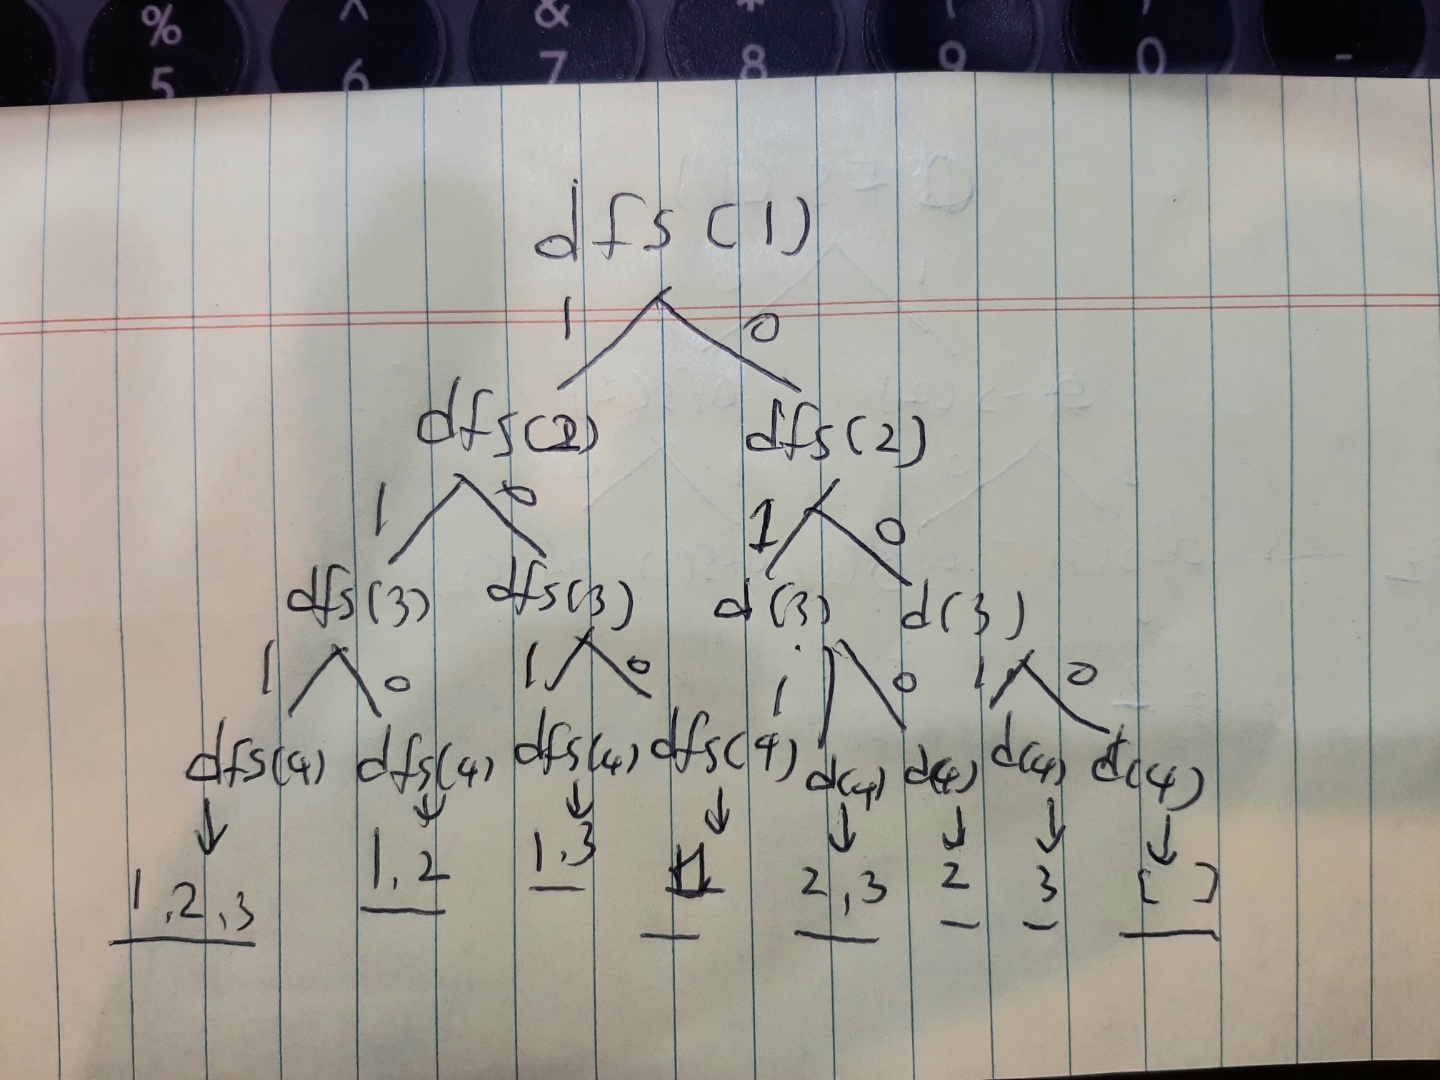 % ^ & * ( )
5 6 7 8 9 0 -
dfs (1)
1 0
dfs(2) dfs(2)
1 0 1 0
dfs(3) dfs(3) d(3) d(3)
1 0 1 0 1 0 1 0
dfs(4) dfs(4) dfs(4) dfs(4) d(4) d(4) d(4) d(4)
1,2,3 1,2 1.3 1 2,3 2 3 [ ]